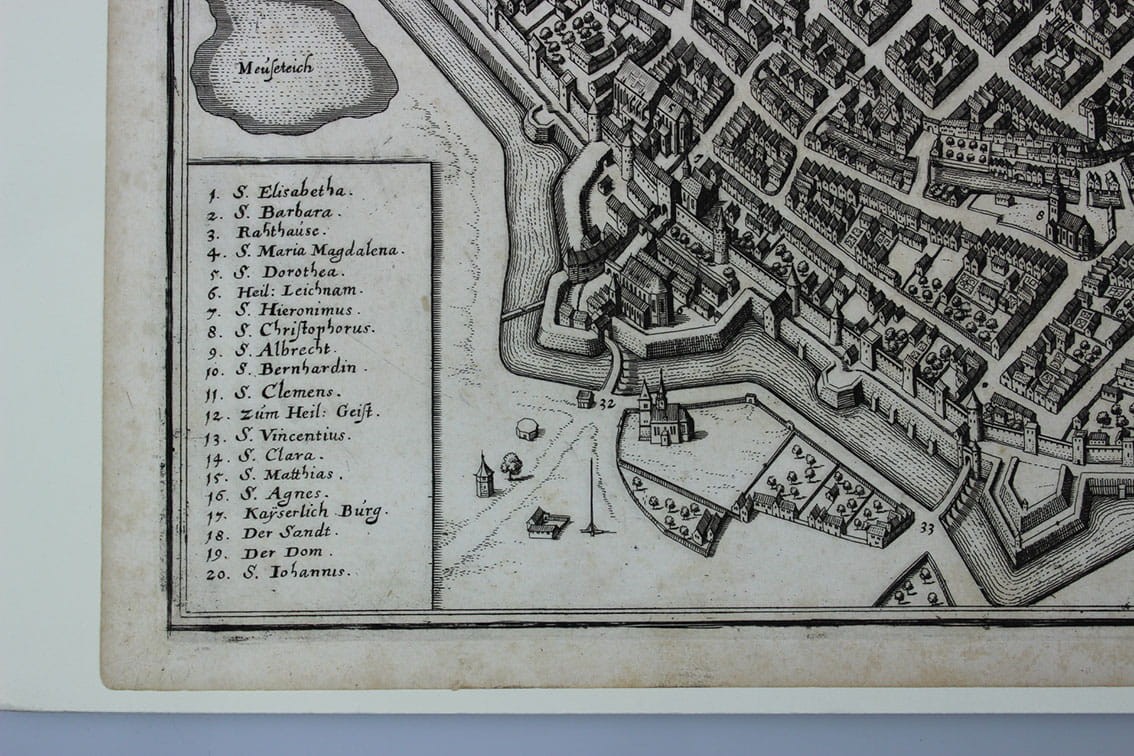 Meuseteich
1. S. Elisabetha.
2. S. Barbara.
3. Rahthause.
4. S. Maria Magdalena.
5. S. Dorothea.
6. Heil: Leichnam.
7. S. Hieronimus.
8. S. Christophorus.
9. S. Albrecht.
10. S. Bernhardin.
11. S. Clemens.
12. zum Heil: Geist.
13. S. Vincentius.
14. S. Clara.
15. S. Matthias.
16. S. Agnes.
17. Kaÿserlich Burg.
18. Der Sandt.
19. Der Dom.
20. S. Iohannis.
7
8
32
33